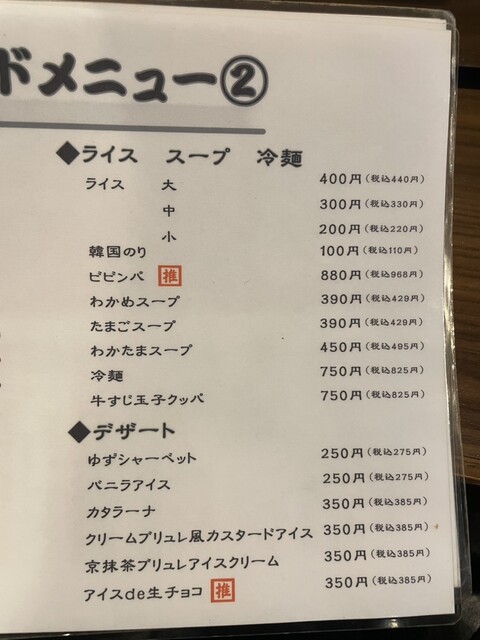 ドメニュー②
◆ライス スープ 冷麺
ライス 大 400円(税込440円)
中 300円(税込330円)
小 200円(税込220円)
韓国のり 100円(税込110円)
ビビンバ 推 880円(税込968円)
わかめスープ 390円(税込429円)
たまごスープ 390円(税込429円)
わかたまスープ 450円(税込495円)
冷麺 750円(税込825円)
牛すじ玉子クッパ 750円(税込825円)
◆デザート
ゆずシャーベット 250円(税込275円)
バニラアイス 250円(税込275円)
カタラーナ 350円(税込385円)
クリームブリュレ風カスタードアイス 350円(税込385円)
京抹茶ブリュレアイスクリーム 350円(税込385円)
アイスde生チョコ 推 350円(税込385円)